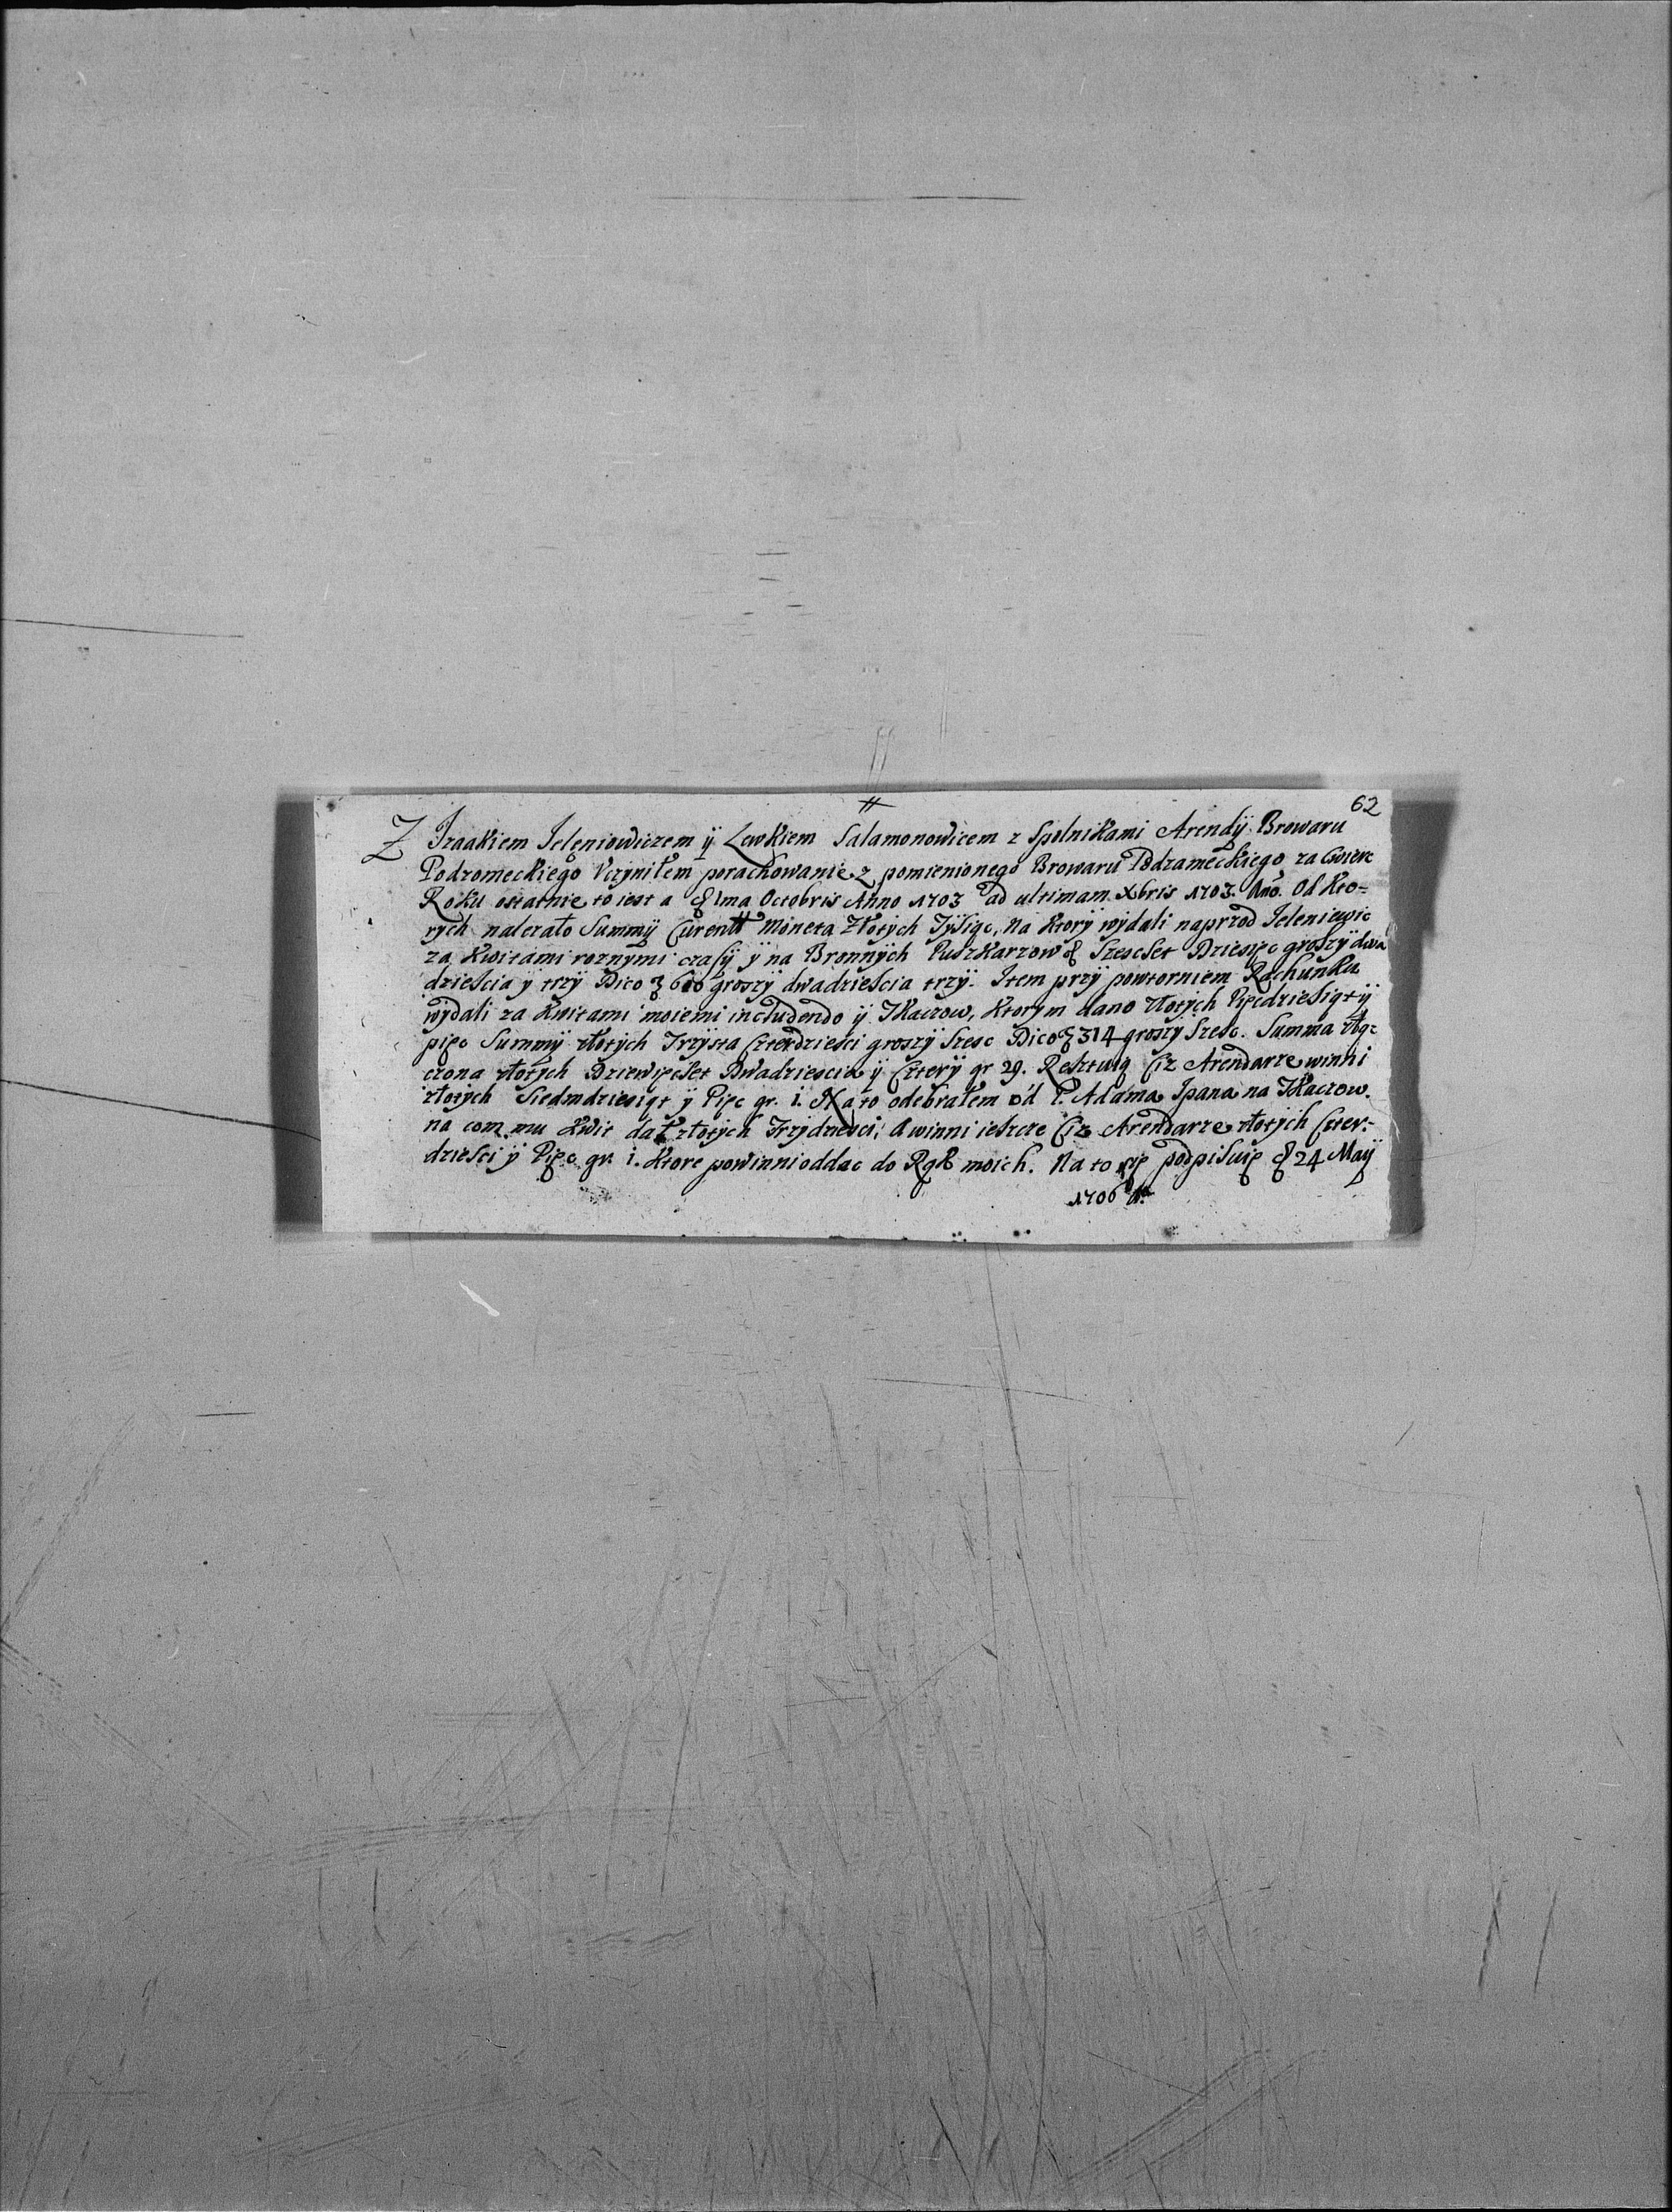 62
Z Izaakiem Jeleniowiczem ÿ Lewkiem Salamonowicem z Spolnikami Arendÿ Browaru
Podzomeckiego Vczyniłem porachowanie z pomienionego Browaru Podzameckiego za Cwierc
Roku ostatnie to iest a 1ma Octobris Anno 1703 ad ultimam Xbris 1703. Ano. Od kto=
rych nalezało Summÿ Curentt Moneta Złotÿch Tÿsiąc, Na ktorÿ wÿdali naprzod Jeleniewic
za Kwitami roznymi czasÿ ÿ na Bronnÿch Puszkarzow Szescset Dziesięc groszÿ dwa
dziescia ÿ trzÿ Dico 610 groszÿ dwadziescia trzÿ. Item przÿ powtorniem Rachunku
wÿdali za Kwitami moiemi includendo ÿ Tkaczow, Ktorym dano złotÿch Pięcdziesiąt ÿ
pięc Summÿ złotÿch Trzÿsta Czterdziesci groszÿ Szesc Dico 314 groszy Szesc. Summa złą=
czona złotÿch Dziewięcset Dwadziescia ÿ Czterÿ gr 29. Resztuią Ciz Arendarze winni
złotÿch Siedmdziesiąt ÿ Pięc gr. i. Na to odebrałem od P. Adama Spana na Tkaczow.
na com mu Kwit dał złotÿch Trzydziesci, A winni ieszcze Ciz Arendarze złotÿch Czter=
dziesci ÿ Pięc gr. i. Ktore powinni oddac do Rąk moich. Na to się podpisuię 24 Maÿ
1706